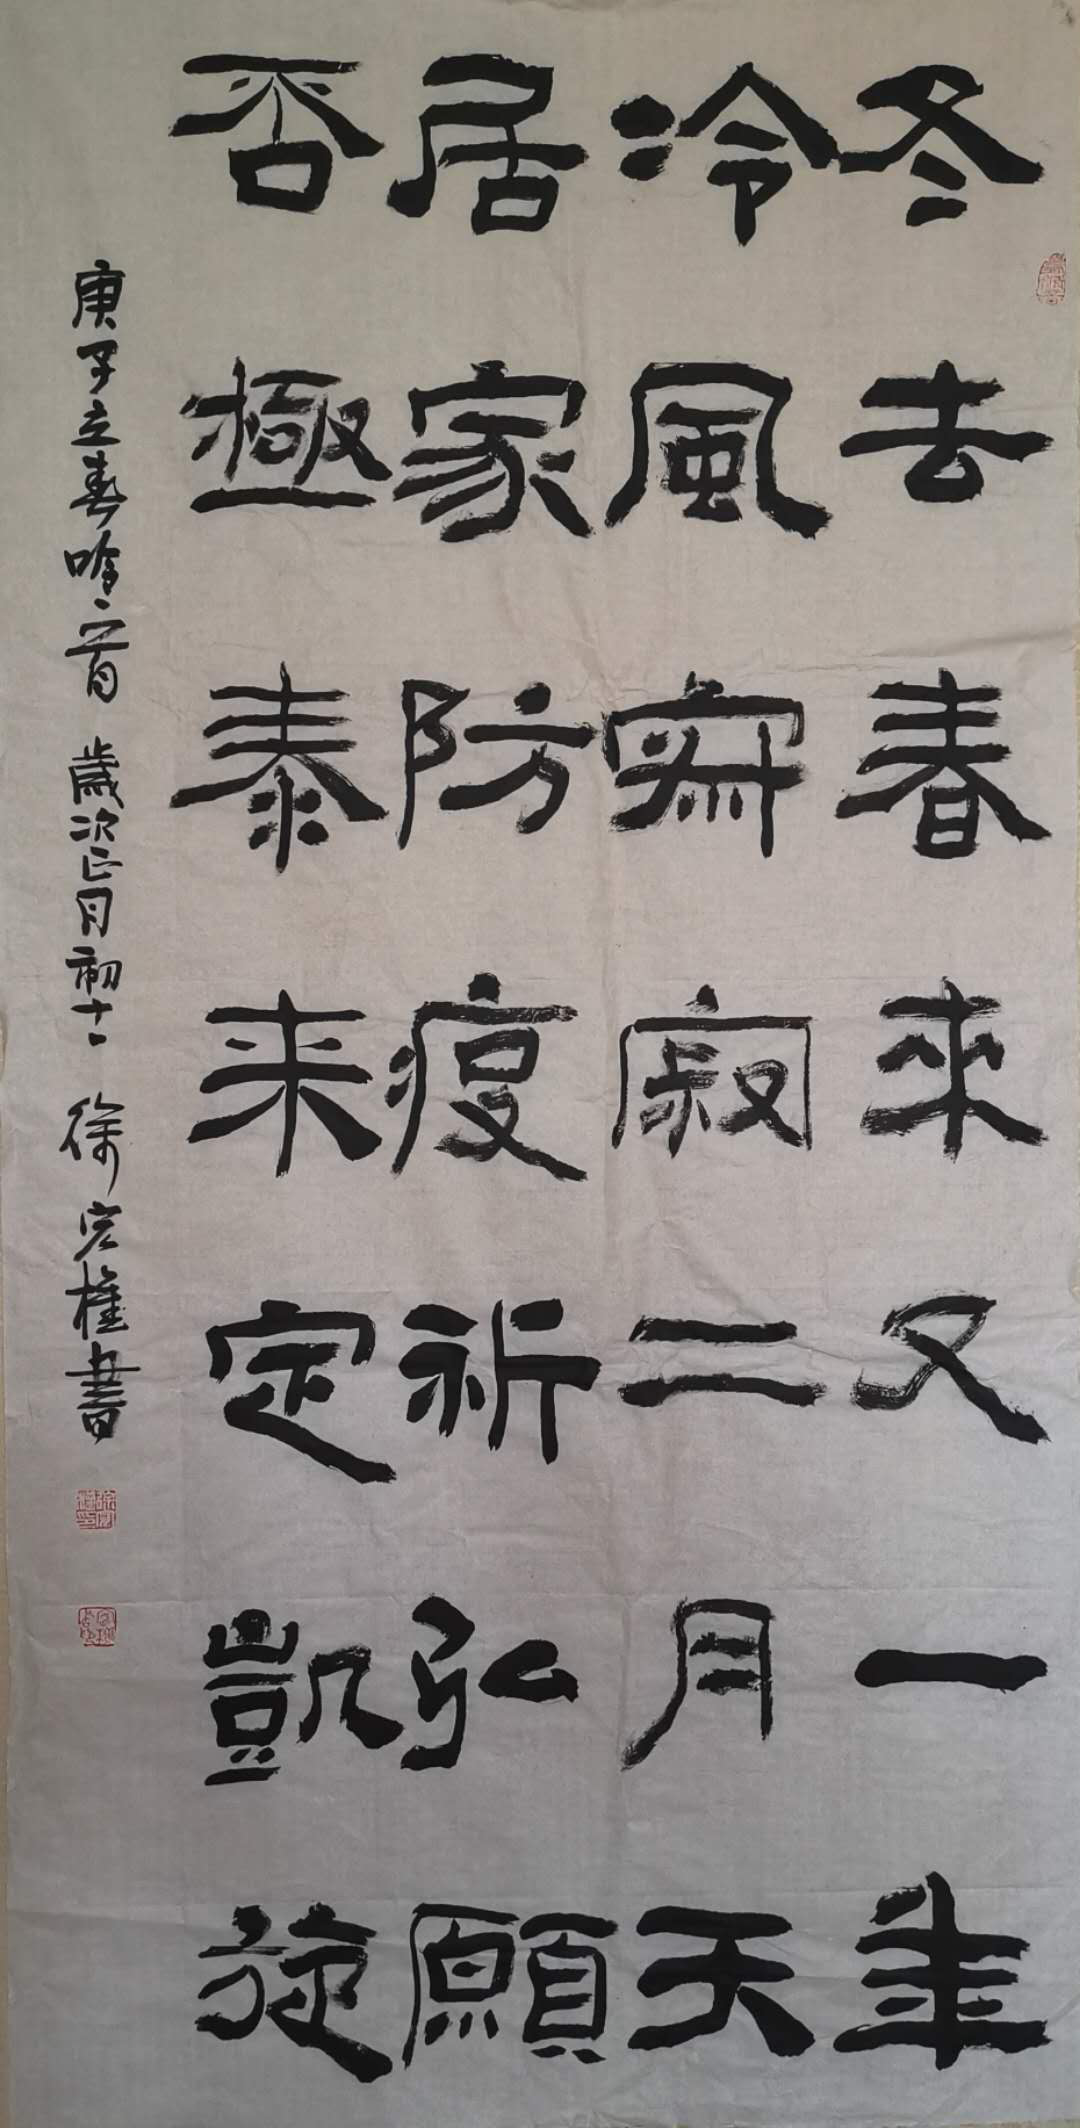 冬去春來又一年
冷風寂二月天
居家防疫祈弘願
否極泰来定凱旋
庚子立春吟一首 歲次正月初十一 徐宏權書